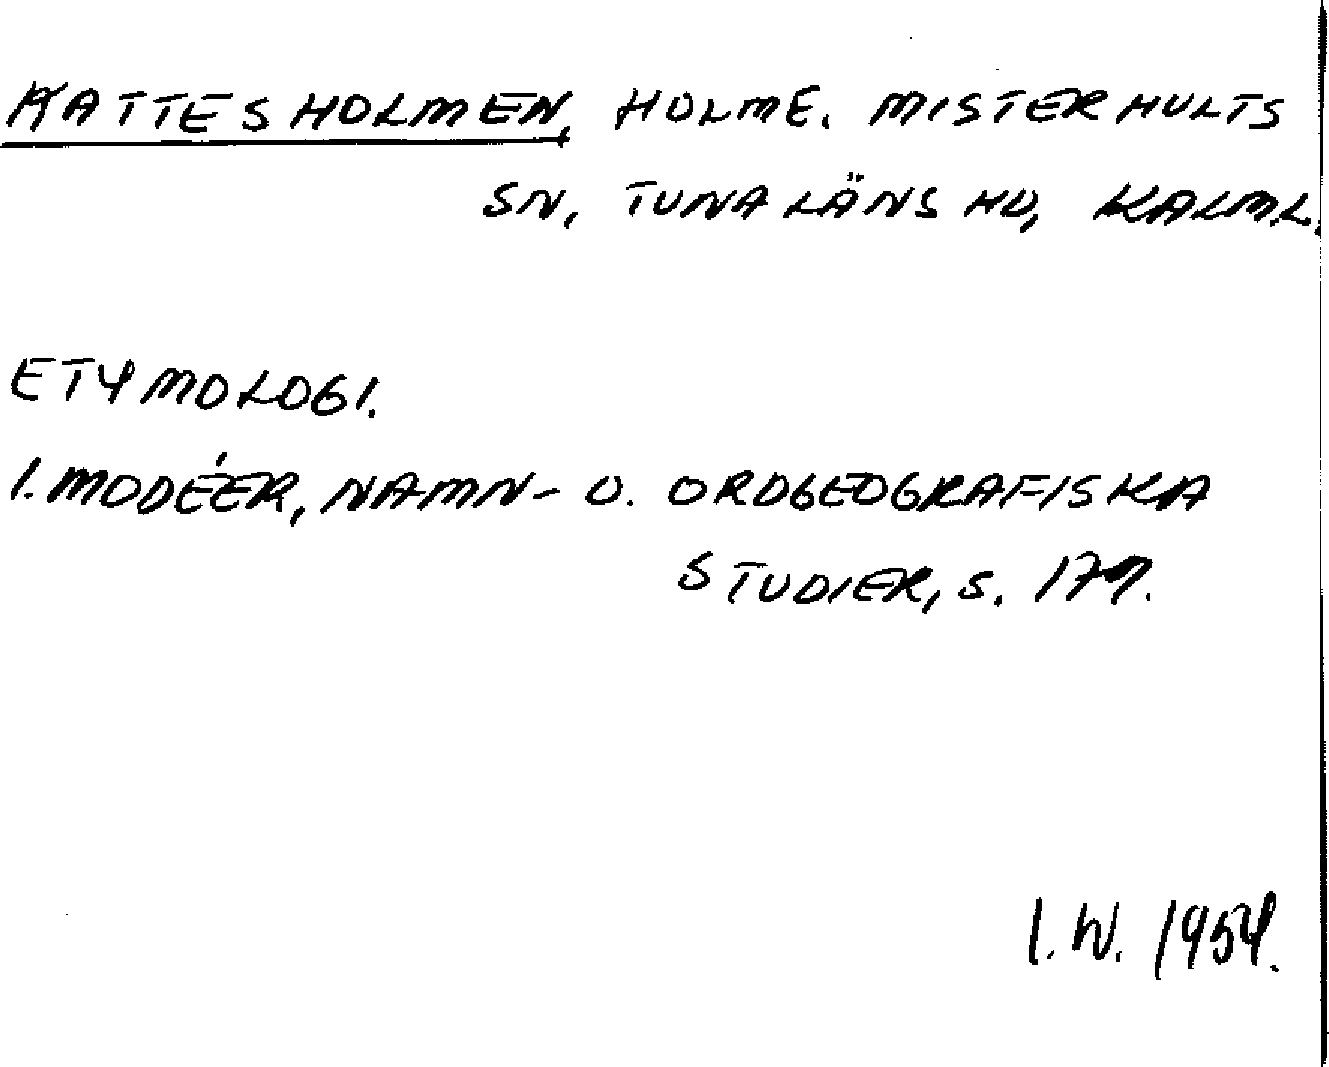 KATTESHOLMEN, HOLME. MISTERHULTS
SN, TUNALÄNS HD, KALML.
ETYMOLOGI.
I. MODÉER, NAMN- O. ORDGEOGRAFISKA
STUDIER, S. 179.
I. W. 1954.